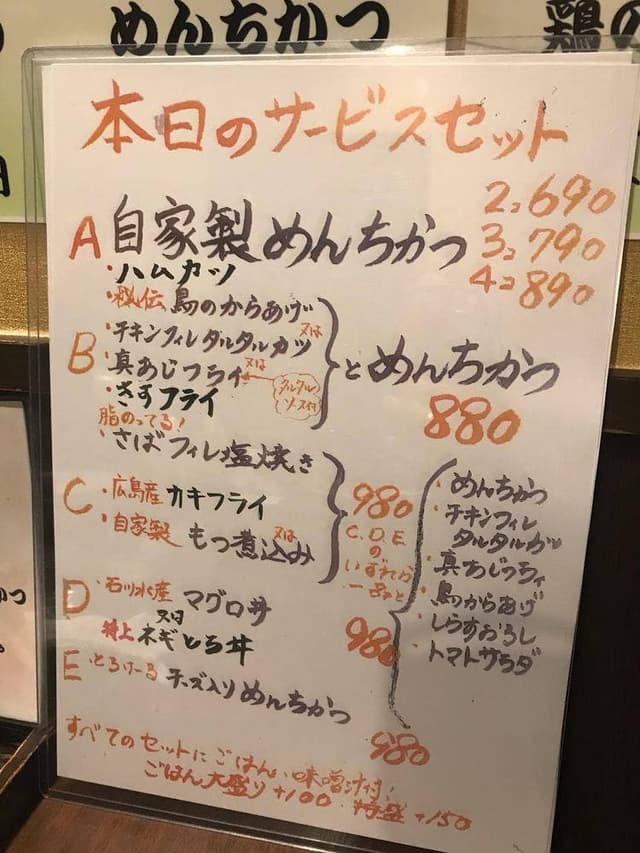 めんちかつ
鶏の
本日のサービスセット
A 自家製めんちかつ
2コ690
3コ790
4コ890
・ハムカツ
・秘伝 鳥のからあげ
・チキンフィレタルタルカツ 又は
B ・真あじフライ 又は
タルタルソース付
・きすフライ
とめんちかつ
880
脂のってる!
・さばフィレ塩焼き
C ・広島産 カキフライ
・自家製 もつ煮込み 又は
980
C.D.E
の
いずれか
一品と
D ・石川水産 マグロ丼
又は
特上 ネギとろ丼
980
E ・とろけーる チーズ入りめんちかつ
980
めんちかつ
・チキンフィレ
タルタルカツ
・真あじフライ
・鳥からあげ
・しらすおろし
・トマトサラダ
すべてのセットにごはん、味噌汁付!
ごはん大盛り+100 特盛+150